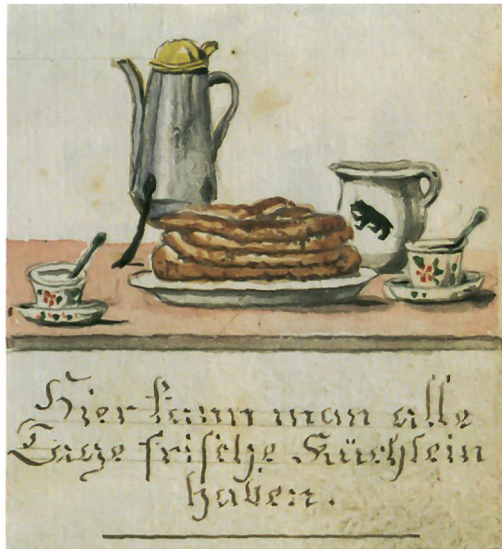 Hier kann man alle
Tage frische Küchlein
haben.